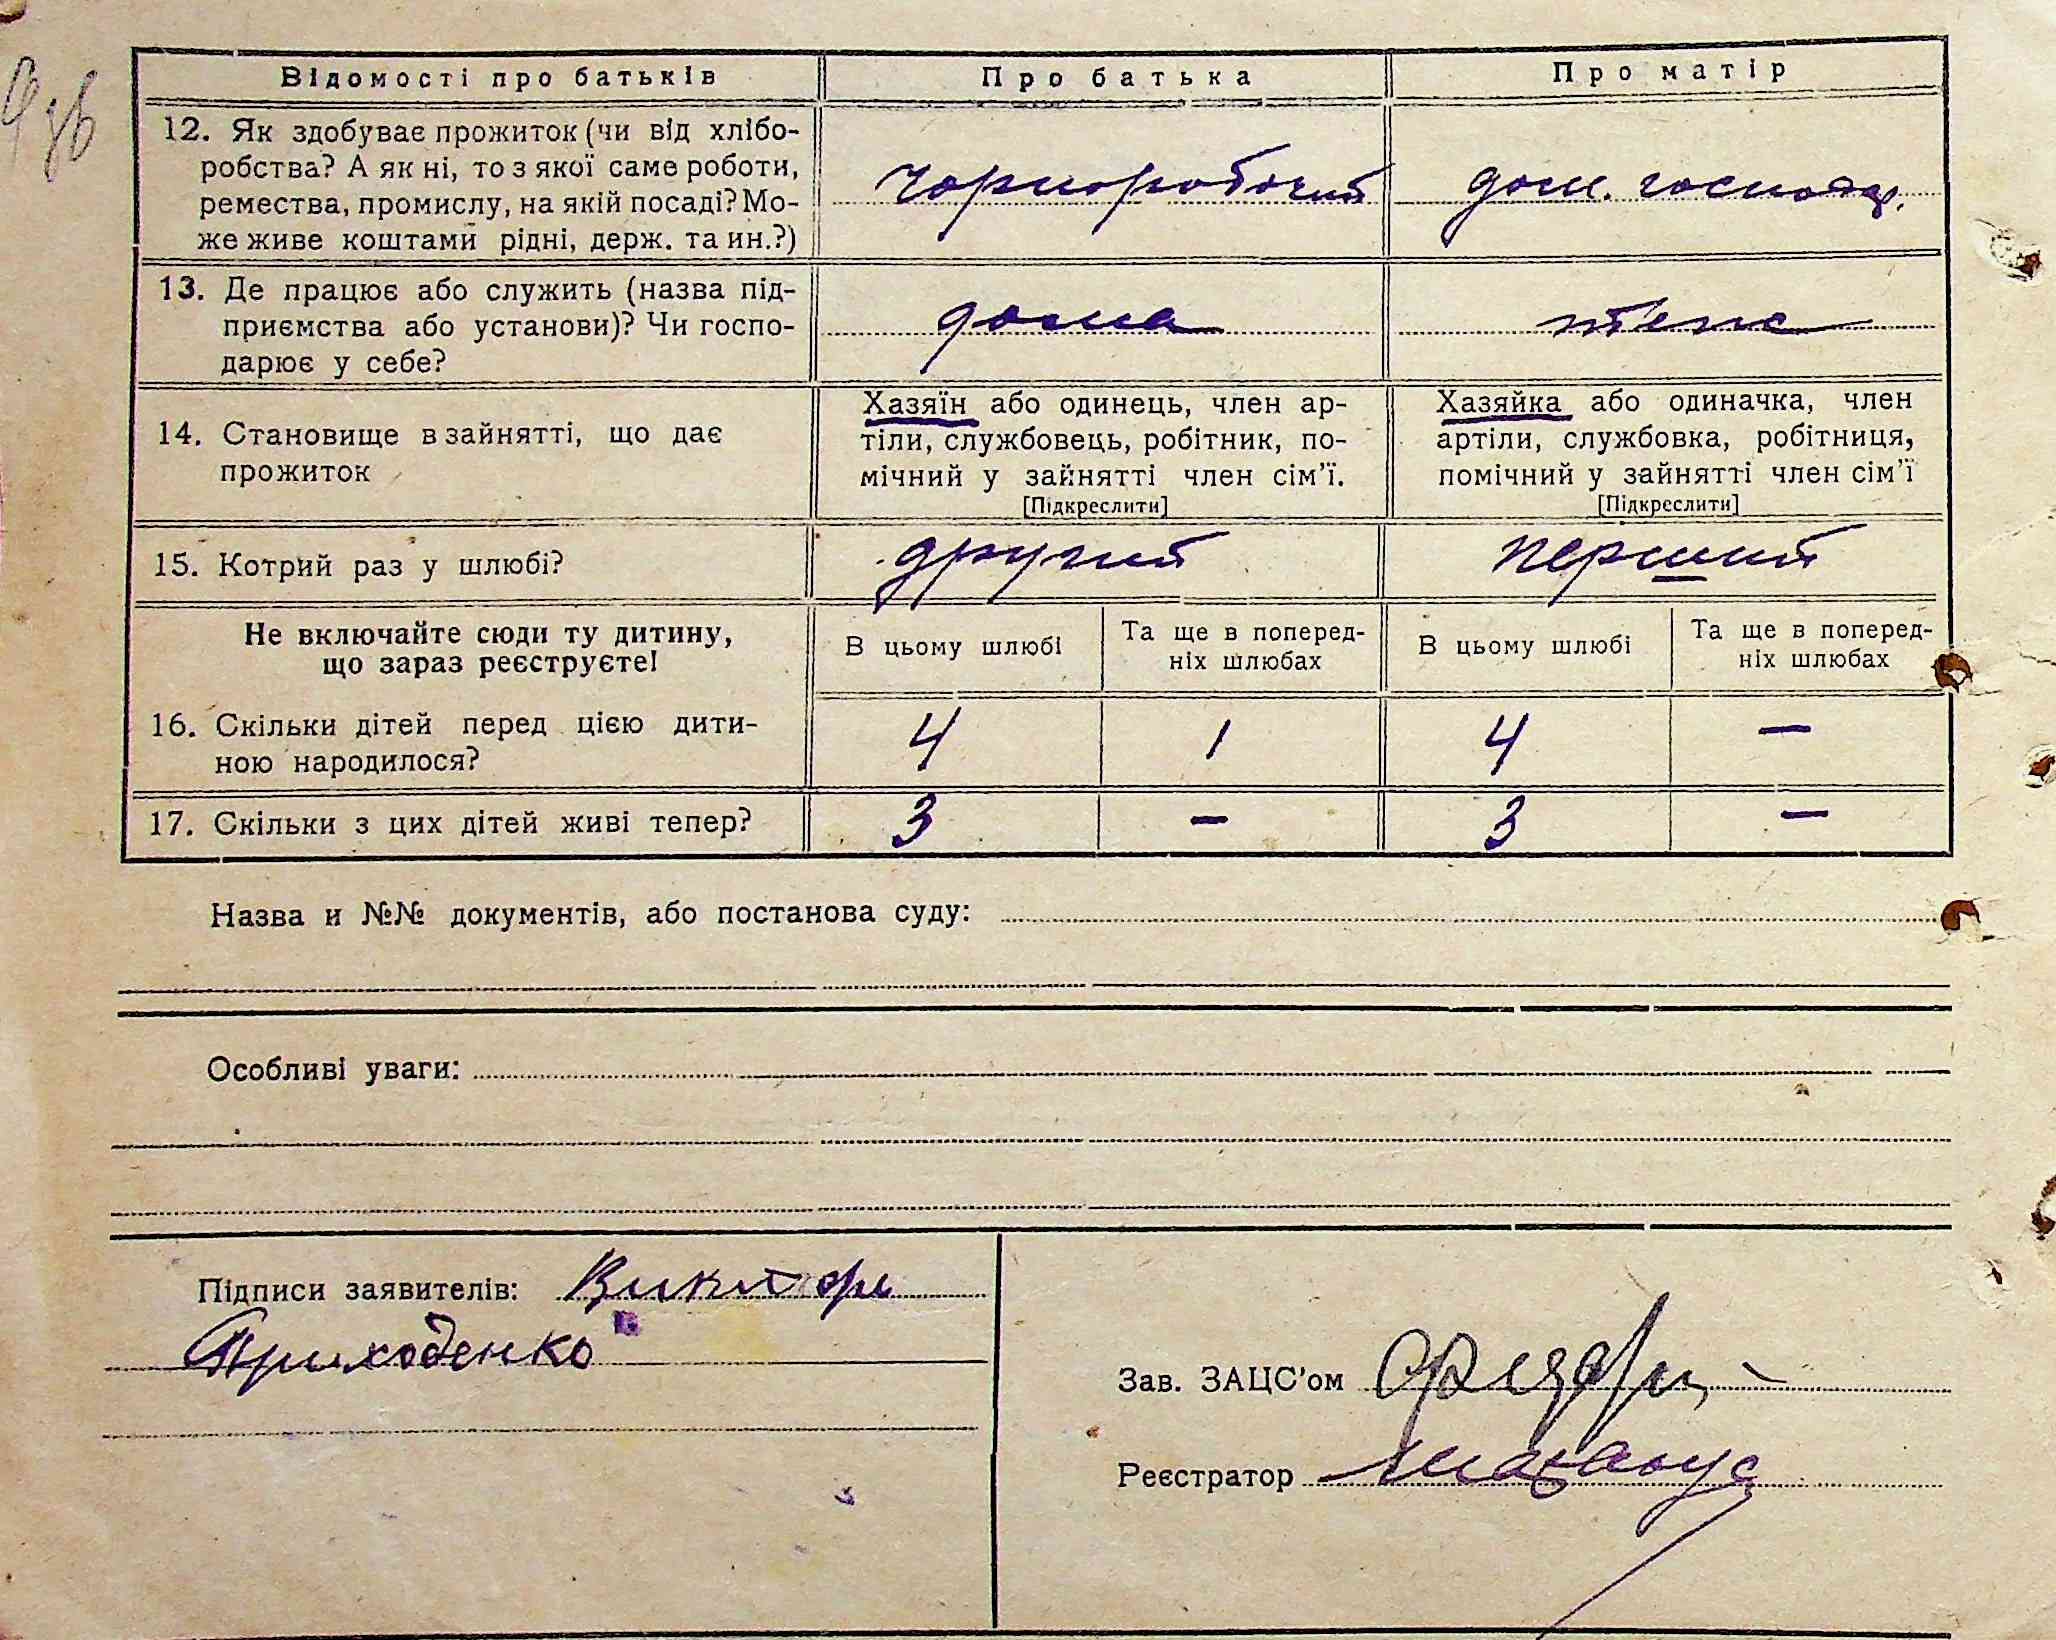 Відомості про батьків Про батька Про матір
12. Як здобуває прожиток (чи від хлібо-
робства? А як ні, то з якої саме роботи,
ремества, промислу, на якій посаді? Мо-
же живе коштами рідні, держ. та ин.?)
чорноробочий дом. господар.
13. Де працює або служить (назва під-
приємства або установи)? Чи госпо-
дарює у себе?
дома теж
14. Становище в зайнятті, що дає
прожиток
Хазяїн або одинець, член ар-
тіли, службовець, робітник, по-
мічний у зайнятті член сім'ї.
[Підкреслити]
Хазяйка або одиначка, член
артіли, службовка, робітниця,
помічний у зайнятті член сім'ї
[Підкреслити]
15. Котрий раз у шлюбі? другий перший
Не включайте сюди ту дитину,
що зараз реєструєте!
В цьому шлюбі Та ще в поперед-
ніх шлюбах
В цьому шлюбі Та ще в поперед-
ніх шлюбах
16. Скільки дітей перед цією дити-
ною народилося?
4 1 4 —
17. Скільки з цих дітей живі тепер? 3 — 3 —
Назва и №№ документів, або постанова суду:
Особливі уваги:
Підписи заявителів:
Приходенко
Зав. ЗАЦС'ом
Реєстратор